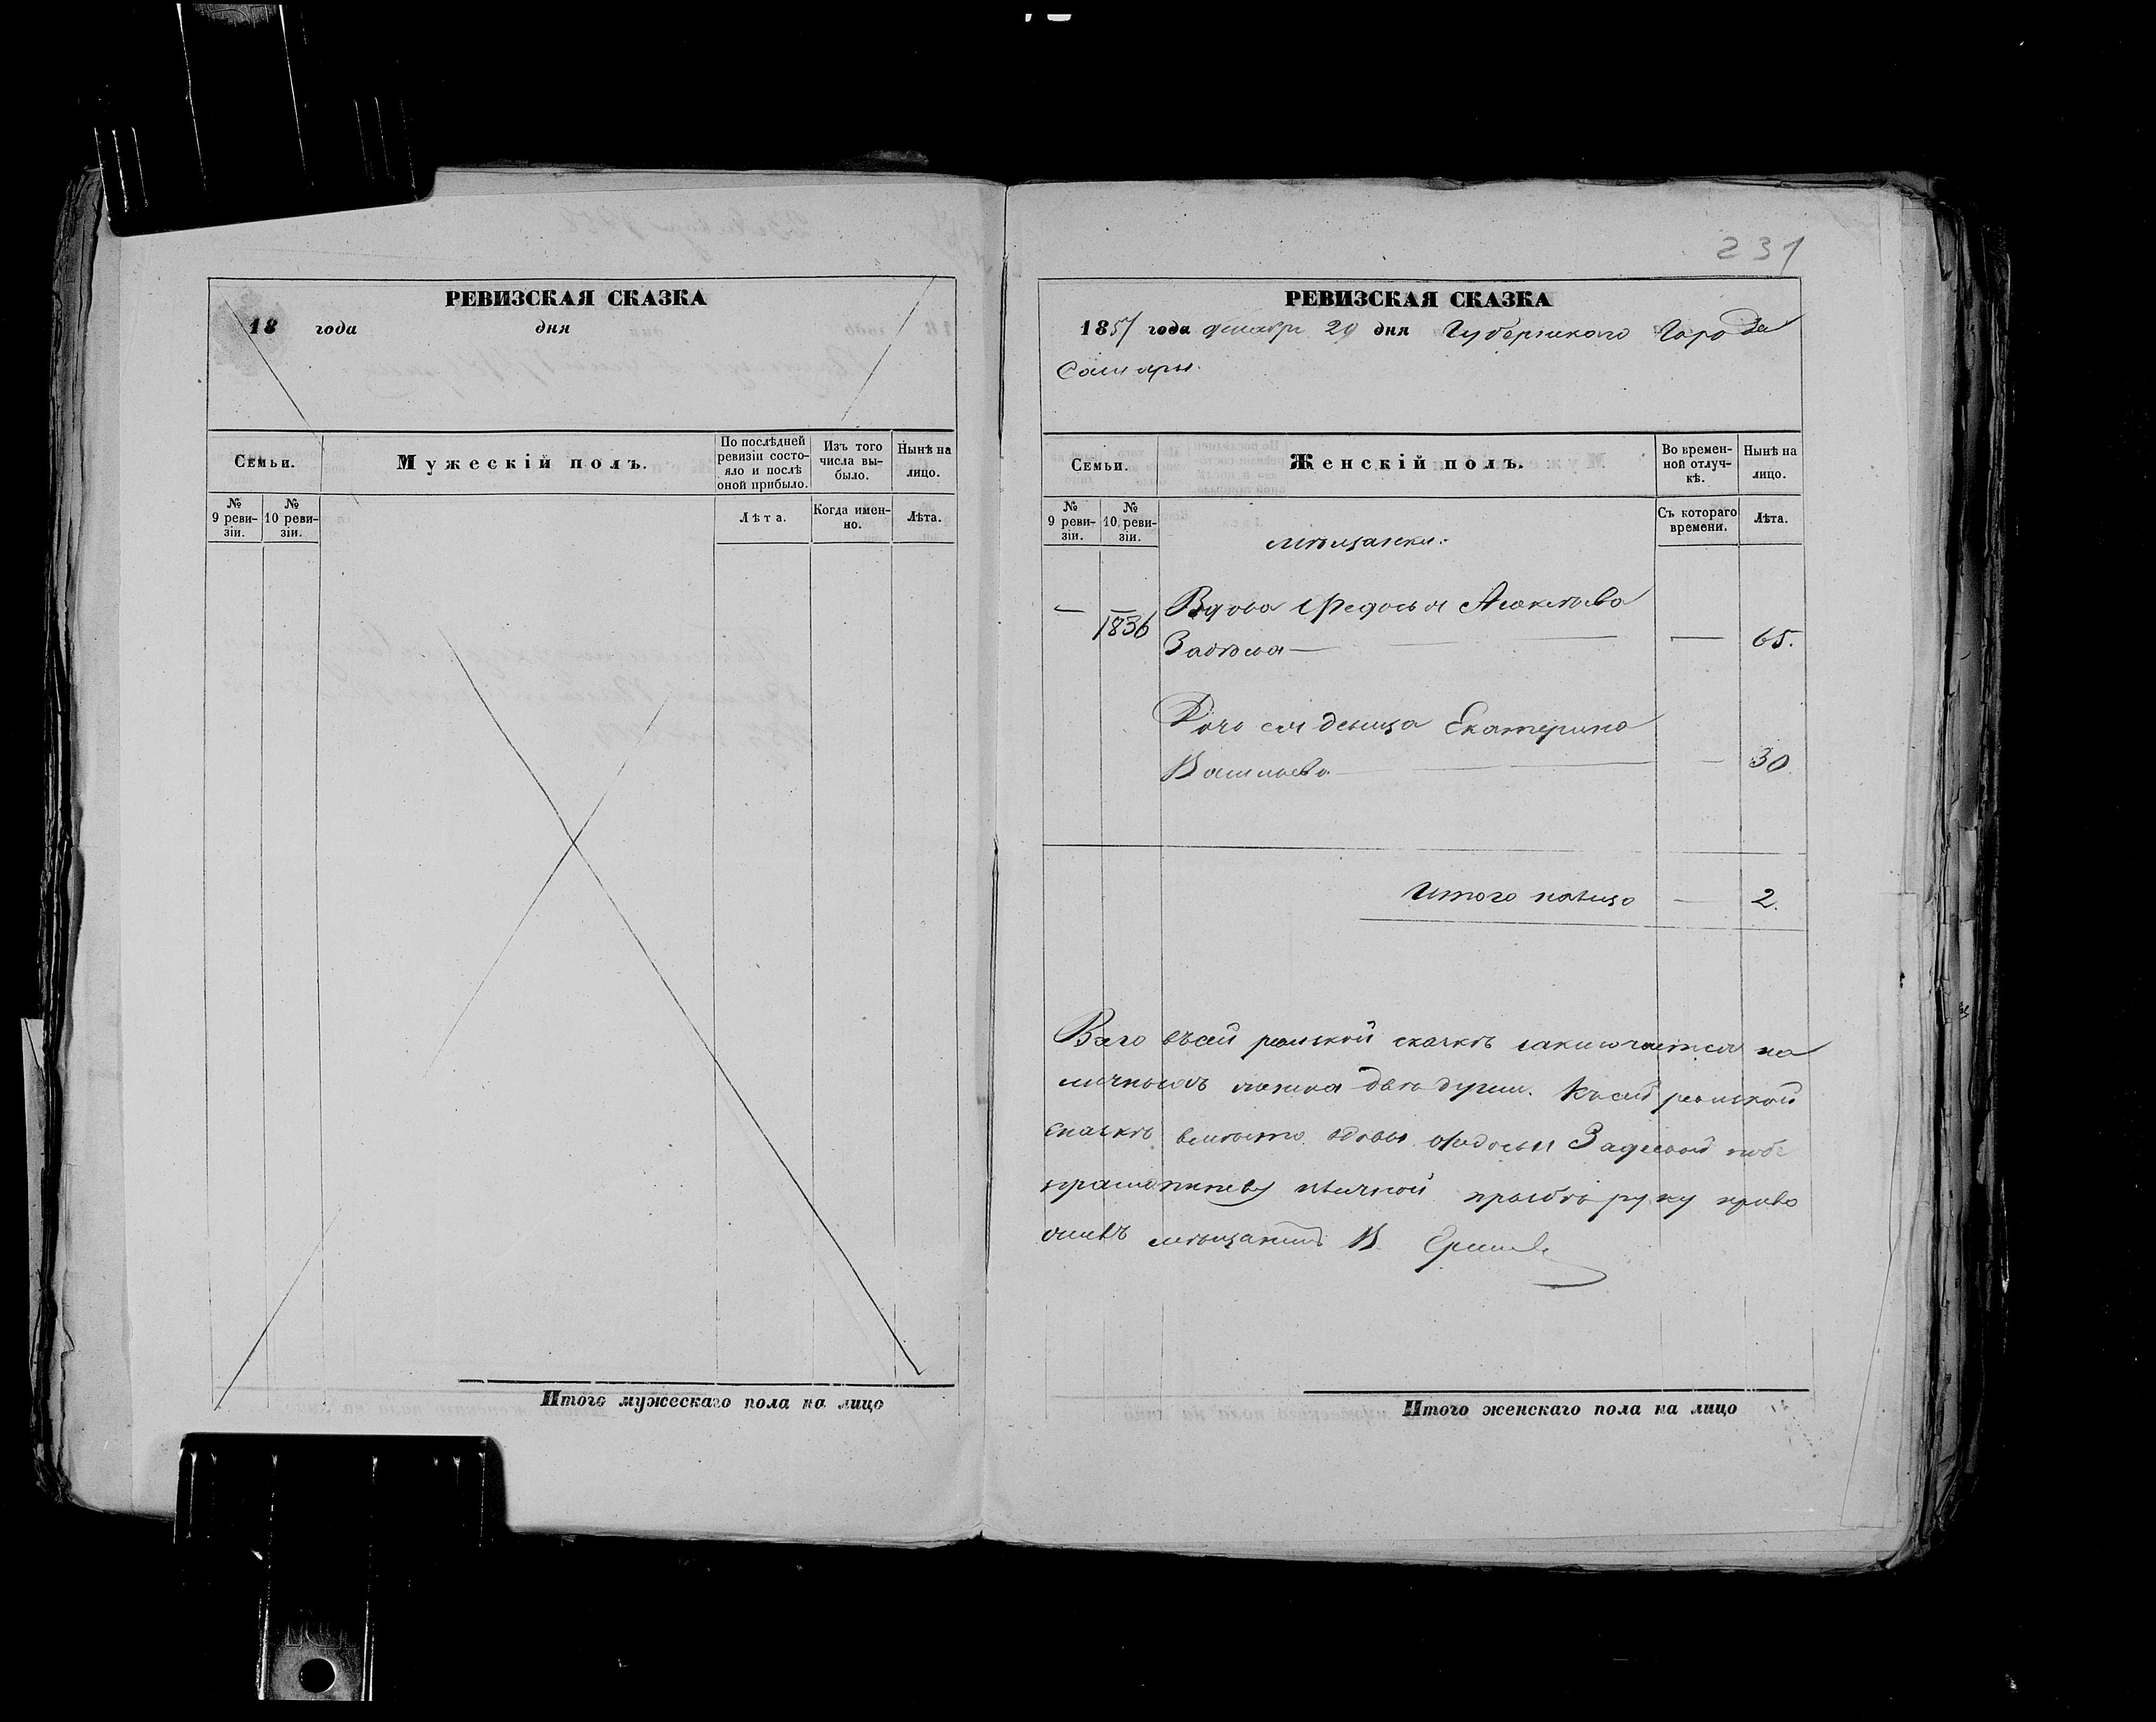 РЕВИЗСКАЯ СКАЗКА
18 года дня
Семьи.
Мужескій полъ.
По послѣдней ревизіи состояло и послѣ оной прибыло.
Изъ того числа выбыло.
Нынѣ на лицо.
№ 9 ревизіи.
№ 10 ревизіи.
Лѣта.
Когда именно.
Лѣта.
Итого мужескаго пола на лицо
231
РЕВИЗСКАЯ СКАЗКА
1857 года декабря 29 дня Губернскаго Города
Самары.
Семьи.
Женскій полъ.
Во временной отлучкѣ.
Нынѣ на лицо.
№ 9 ревизіи.
№ 10 ревизіи.
Съ котораго времени.
Лѣта.
мѣщанки:
— 1836 Вдова Федосья
— 65.
Дочь ея девица Екатерина
— 30
Итого налицо — 2.
Всего въ сей ревиской сказкѣ заключается на
личныхъ женска двѣ души. Къ сей ревиской
сказкѣ вместо вдовы Федосьи
личной прозбѣ руку прило
жилъ мѣщанинъ В.
Итого женскаго пола на лицо